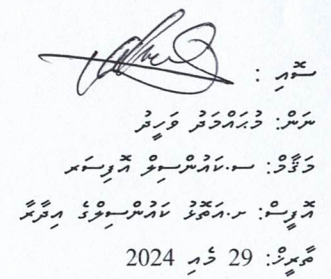 ސޮއި :
ނަން: މުޙައްމަދު ވަހީދު
މަޤާމް: ސ.ކައުންސިލް އޮފިސަރ
އޮފީސް: ށ.އަތޮޅު ކައުންސިލްގެ އިދާރާ
ތާރީޚް: 29 މެއި 2024